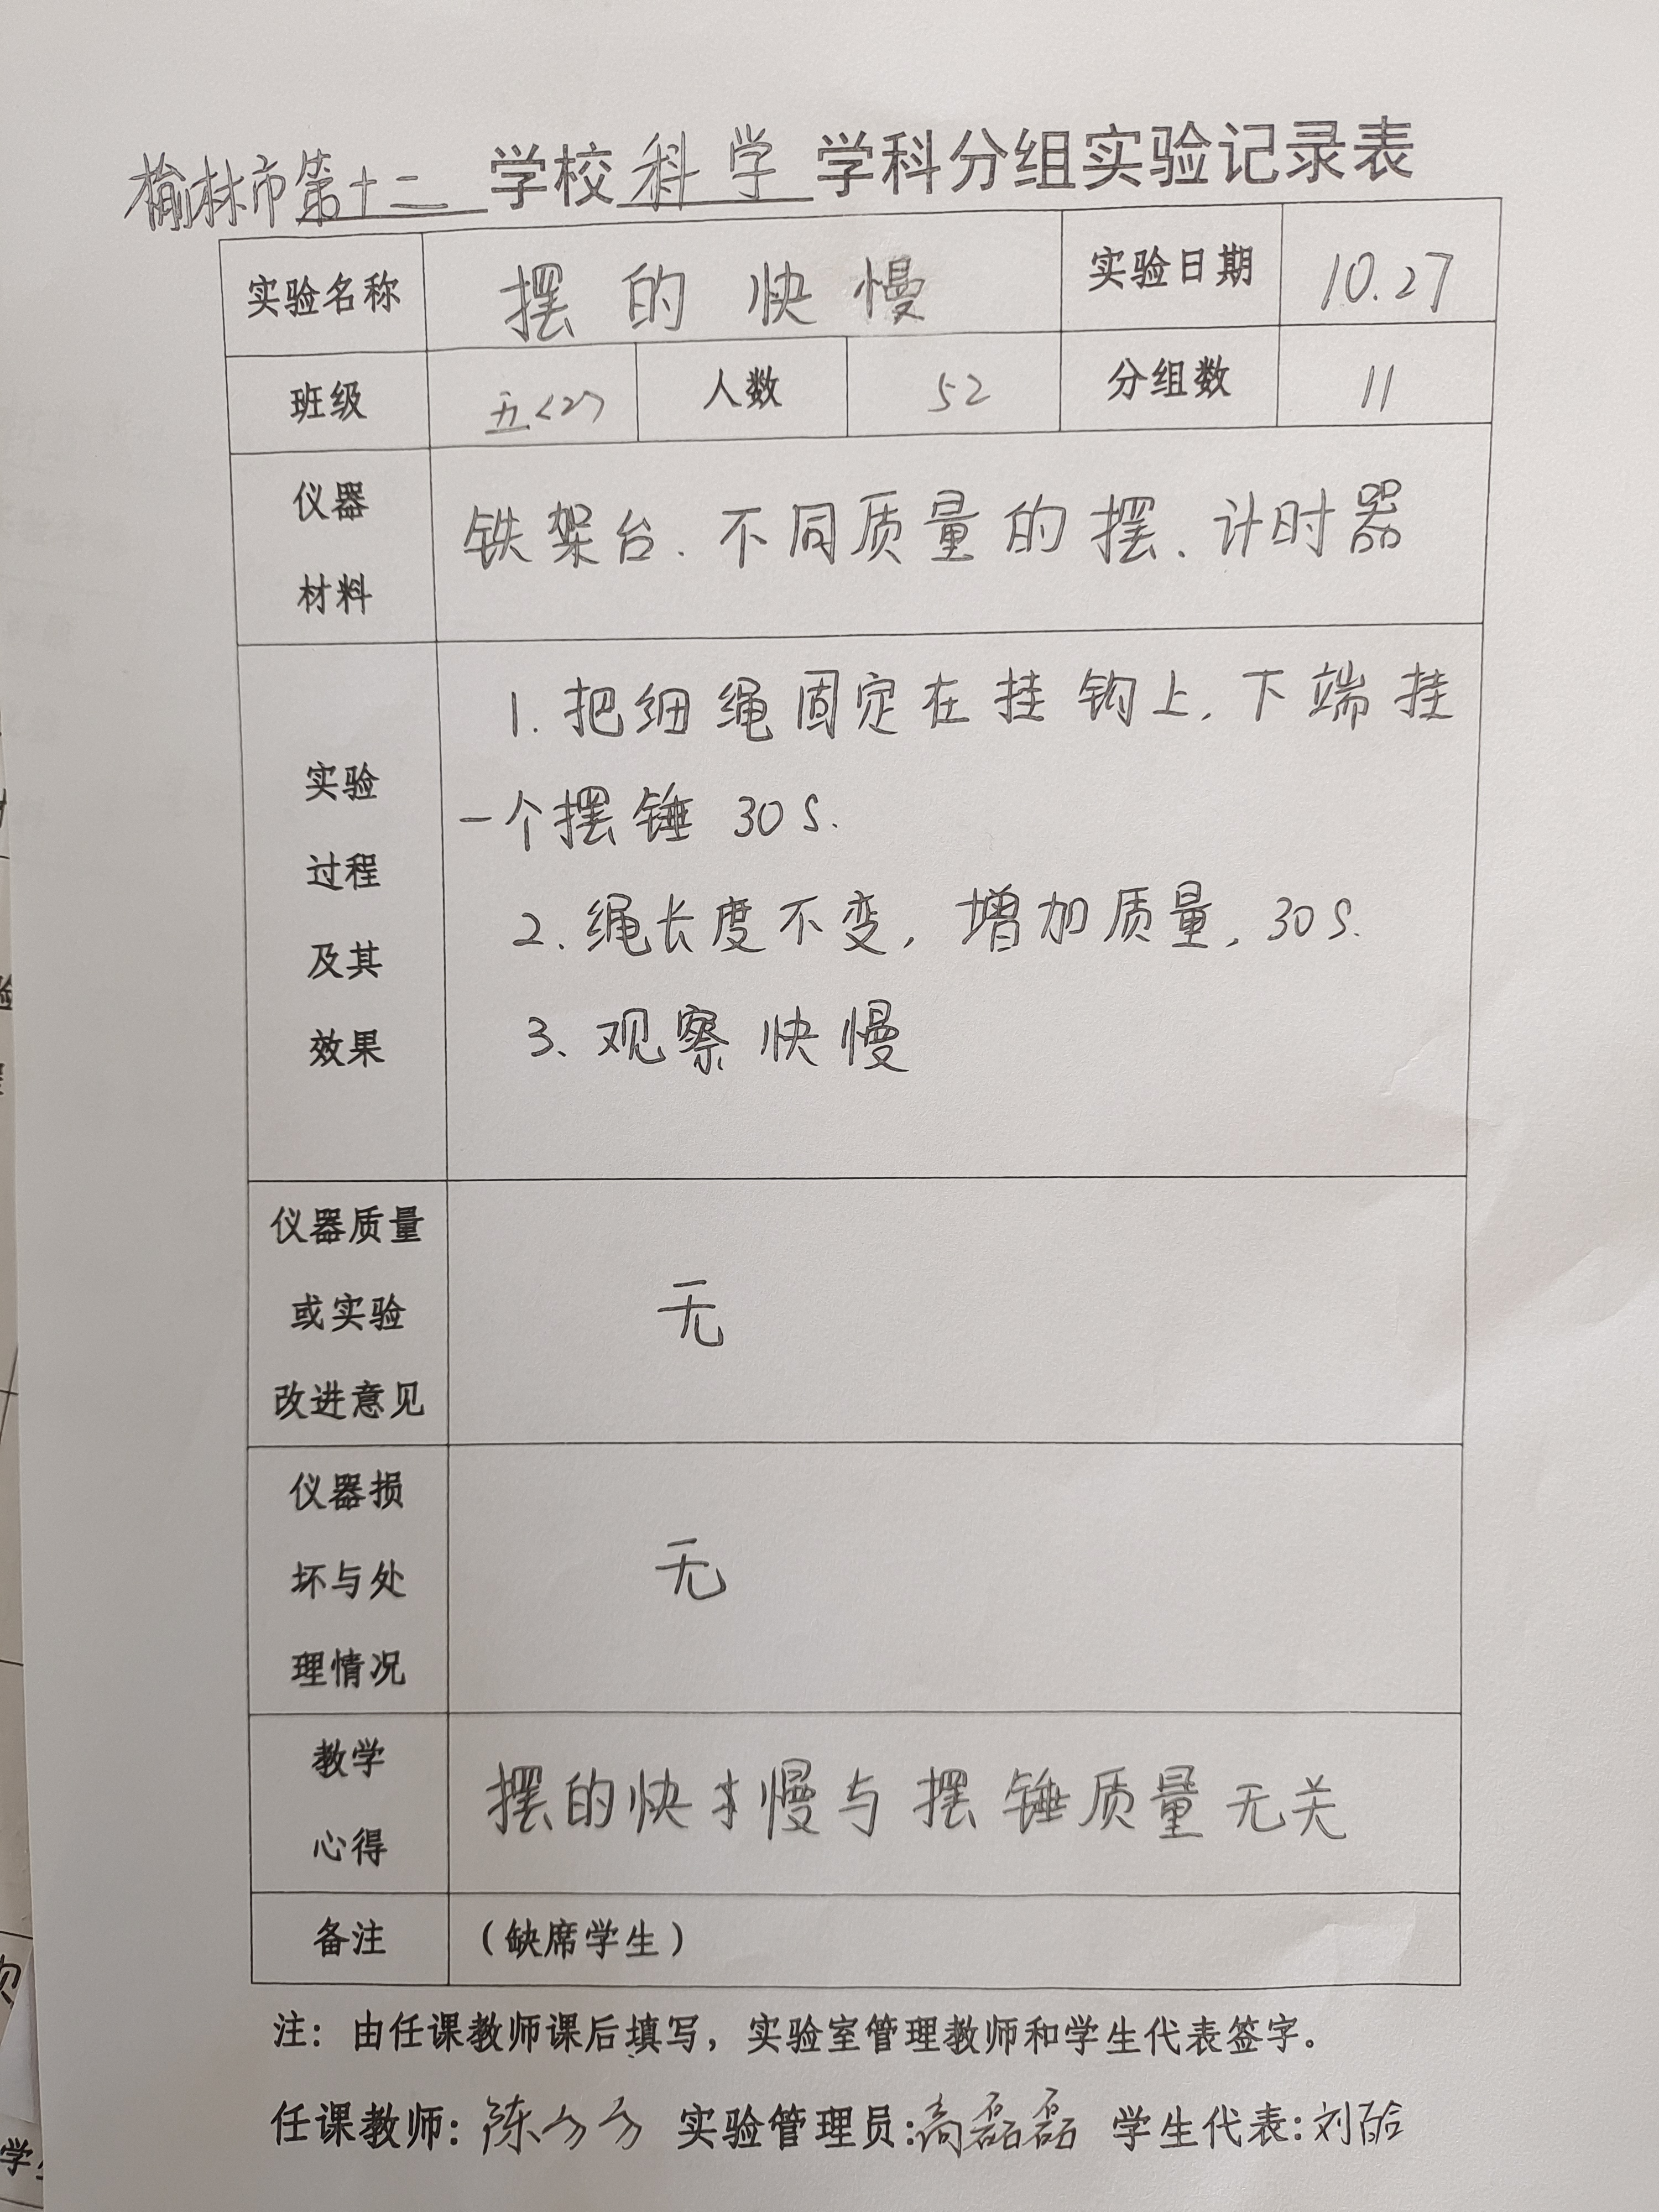 榆林市第十二学校科学学科分组实验记录表
实验名称 摆的快慢 实验日期 10.27
班级 五<2> 人数 52 分组数 11
仪器
材料
铁架台、不同质量的摆、计时器
实验
过程
及其
效果
1. 把细绳固定在挂钩上,下端挂
一个摆锤 30S.
2. 绳长度不变,增加质量,30S.
3、观察快慢
仪器质量
或实验
改进意见
无
仪器损
坏与处
理情况
无
教学
心得
摆的快慢与摆锤质量无关
备注 (缺席学生)
注:由任课教师课后填写,实验室管理教师和学生代表签字。
任课教师:陈 实验管理员:磊磊 学生代表:刘